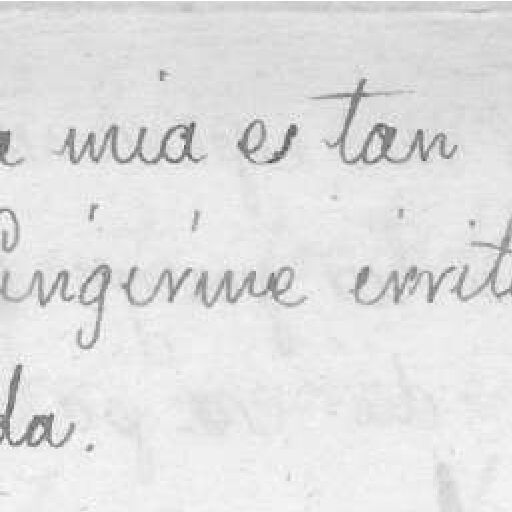 a mia es tan
fingirme irrita
da.